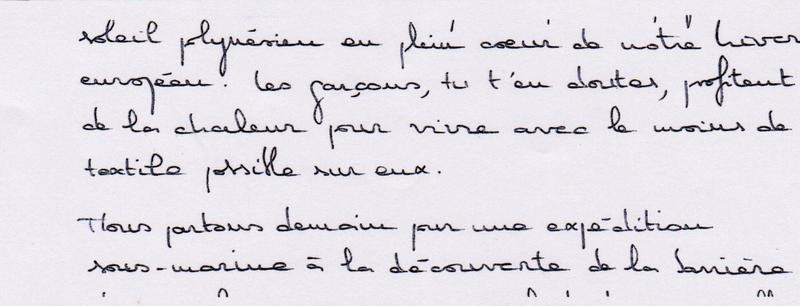 soleil plynésien en plein coeur de nôtre hiver
européen. Les garçons, tu t'en doutes, profitent
de la chaleur pour vivre avec le moins de
textile possible sur eux.
Nous partons demain pour une expédition
sous-marine à la découverte de la barrière